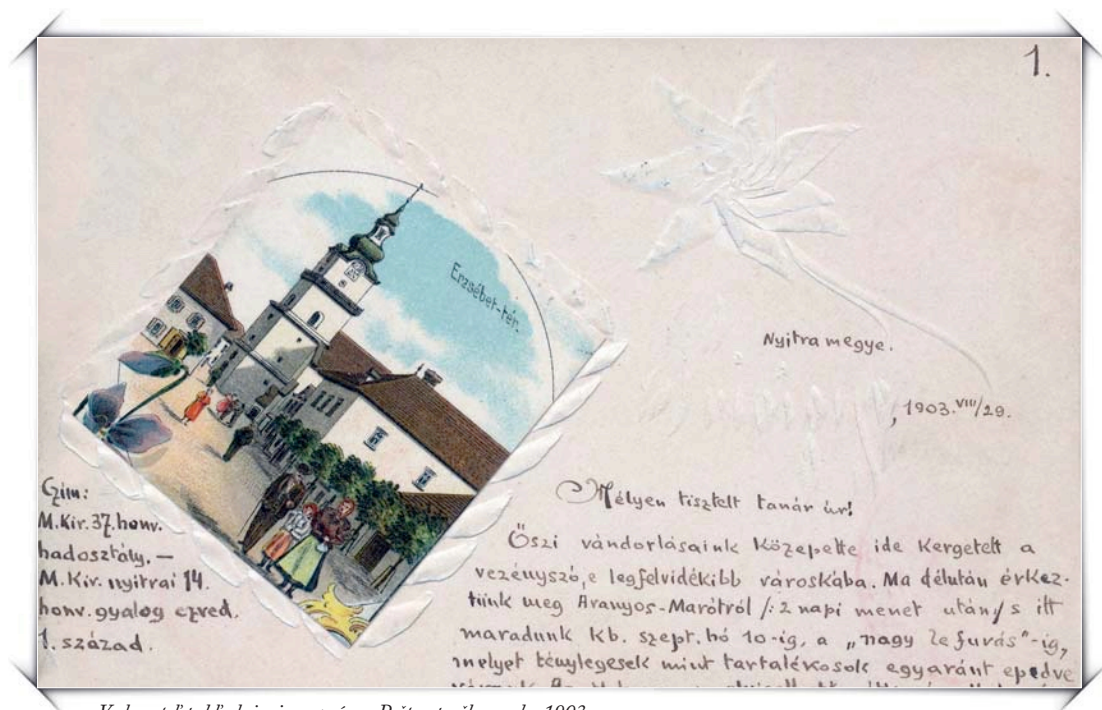 1.
Erzsébet-tér.
Nyitra megye.
, 1903.VIII/29.
Czím:
M. Kir. 37. honv.
hadosztály. —
M. Kir. nyitrai 14.
honv. gyalog ezred.
1. század.
Mélyen tisztelt tanár úr!
Őszi vándorlásaink közepette ide kergetett a
vezényszó, e legfelvidékibb városkába. Ma délután érkez-
tünk meg Aranyos-Marótról /: 2 napi menet után/ s itt
maradunk kb. szept. hó 10-ig, a „nagy lefuvás"-ig,
melyet ténylegesek mint tartalékosok egyaránt epedve